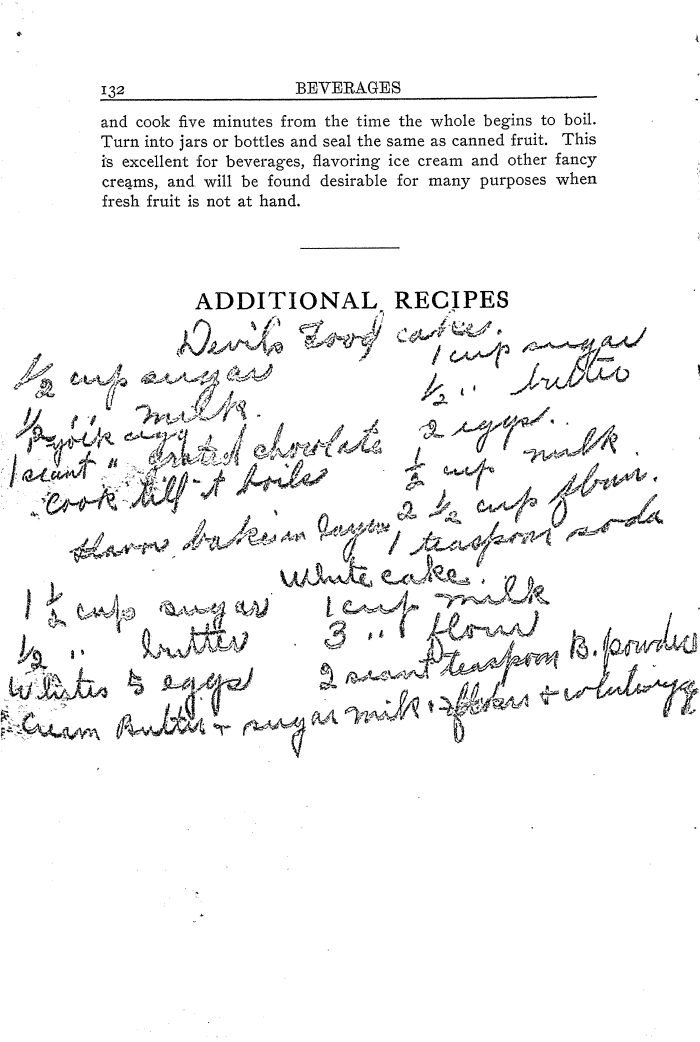 132 BEVERAGES
and cook five minutes from the time the whole begins to boil.
Turn into jars or bottles and seal the same as canned fruit. This
is excellent for beverages, flavoring ice cream and other fancy
creams, and will be found desirable for many purposes when
fresh fruit is not at hand.
ADDITIONAL RECIPES
Devils Food cakes.
½ cup sugar
½ " milk.
yolk egg
1 scant " grated chocolate
cook till it boils
1 cup sugar
½ " butter
2 eggs.
½ cup milk
2 ½ cup flour.
1 teaspoon soda
bake in layers
White cake.
1 ½ cup sugar 1 cup milk
½ " butter 3 " flour
Whites 5 eggs 2 scant teaspoon B. powder
Cream Butter + sugar milk + +